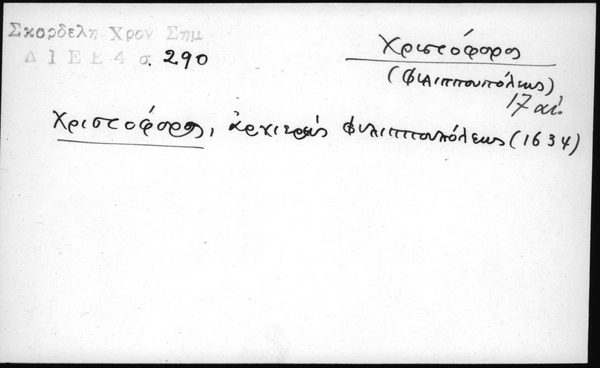 Σκορδελη Χρον Σημ
Δ Ι Ε Ε 4 σ. 290
Χριστόφορος
(Φιλιππουπόλεως)
17 αἰ.
Χριστοφόρος, ἀρχιερεὺς Φιλιππουπόλεως (1634)